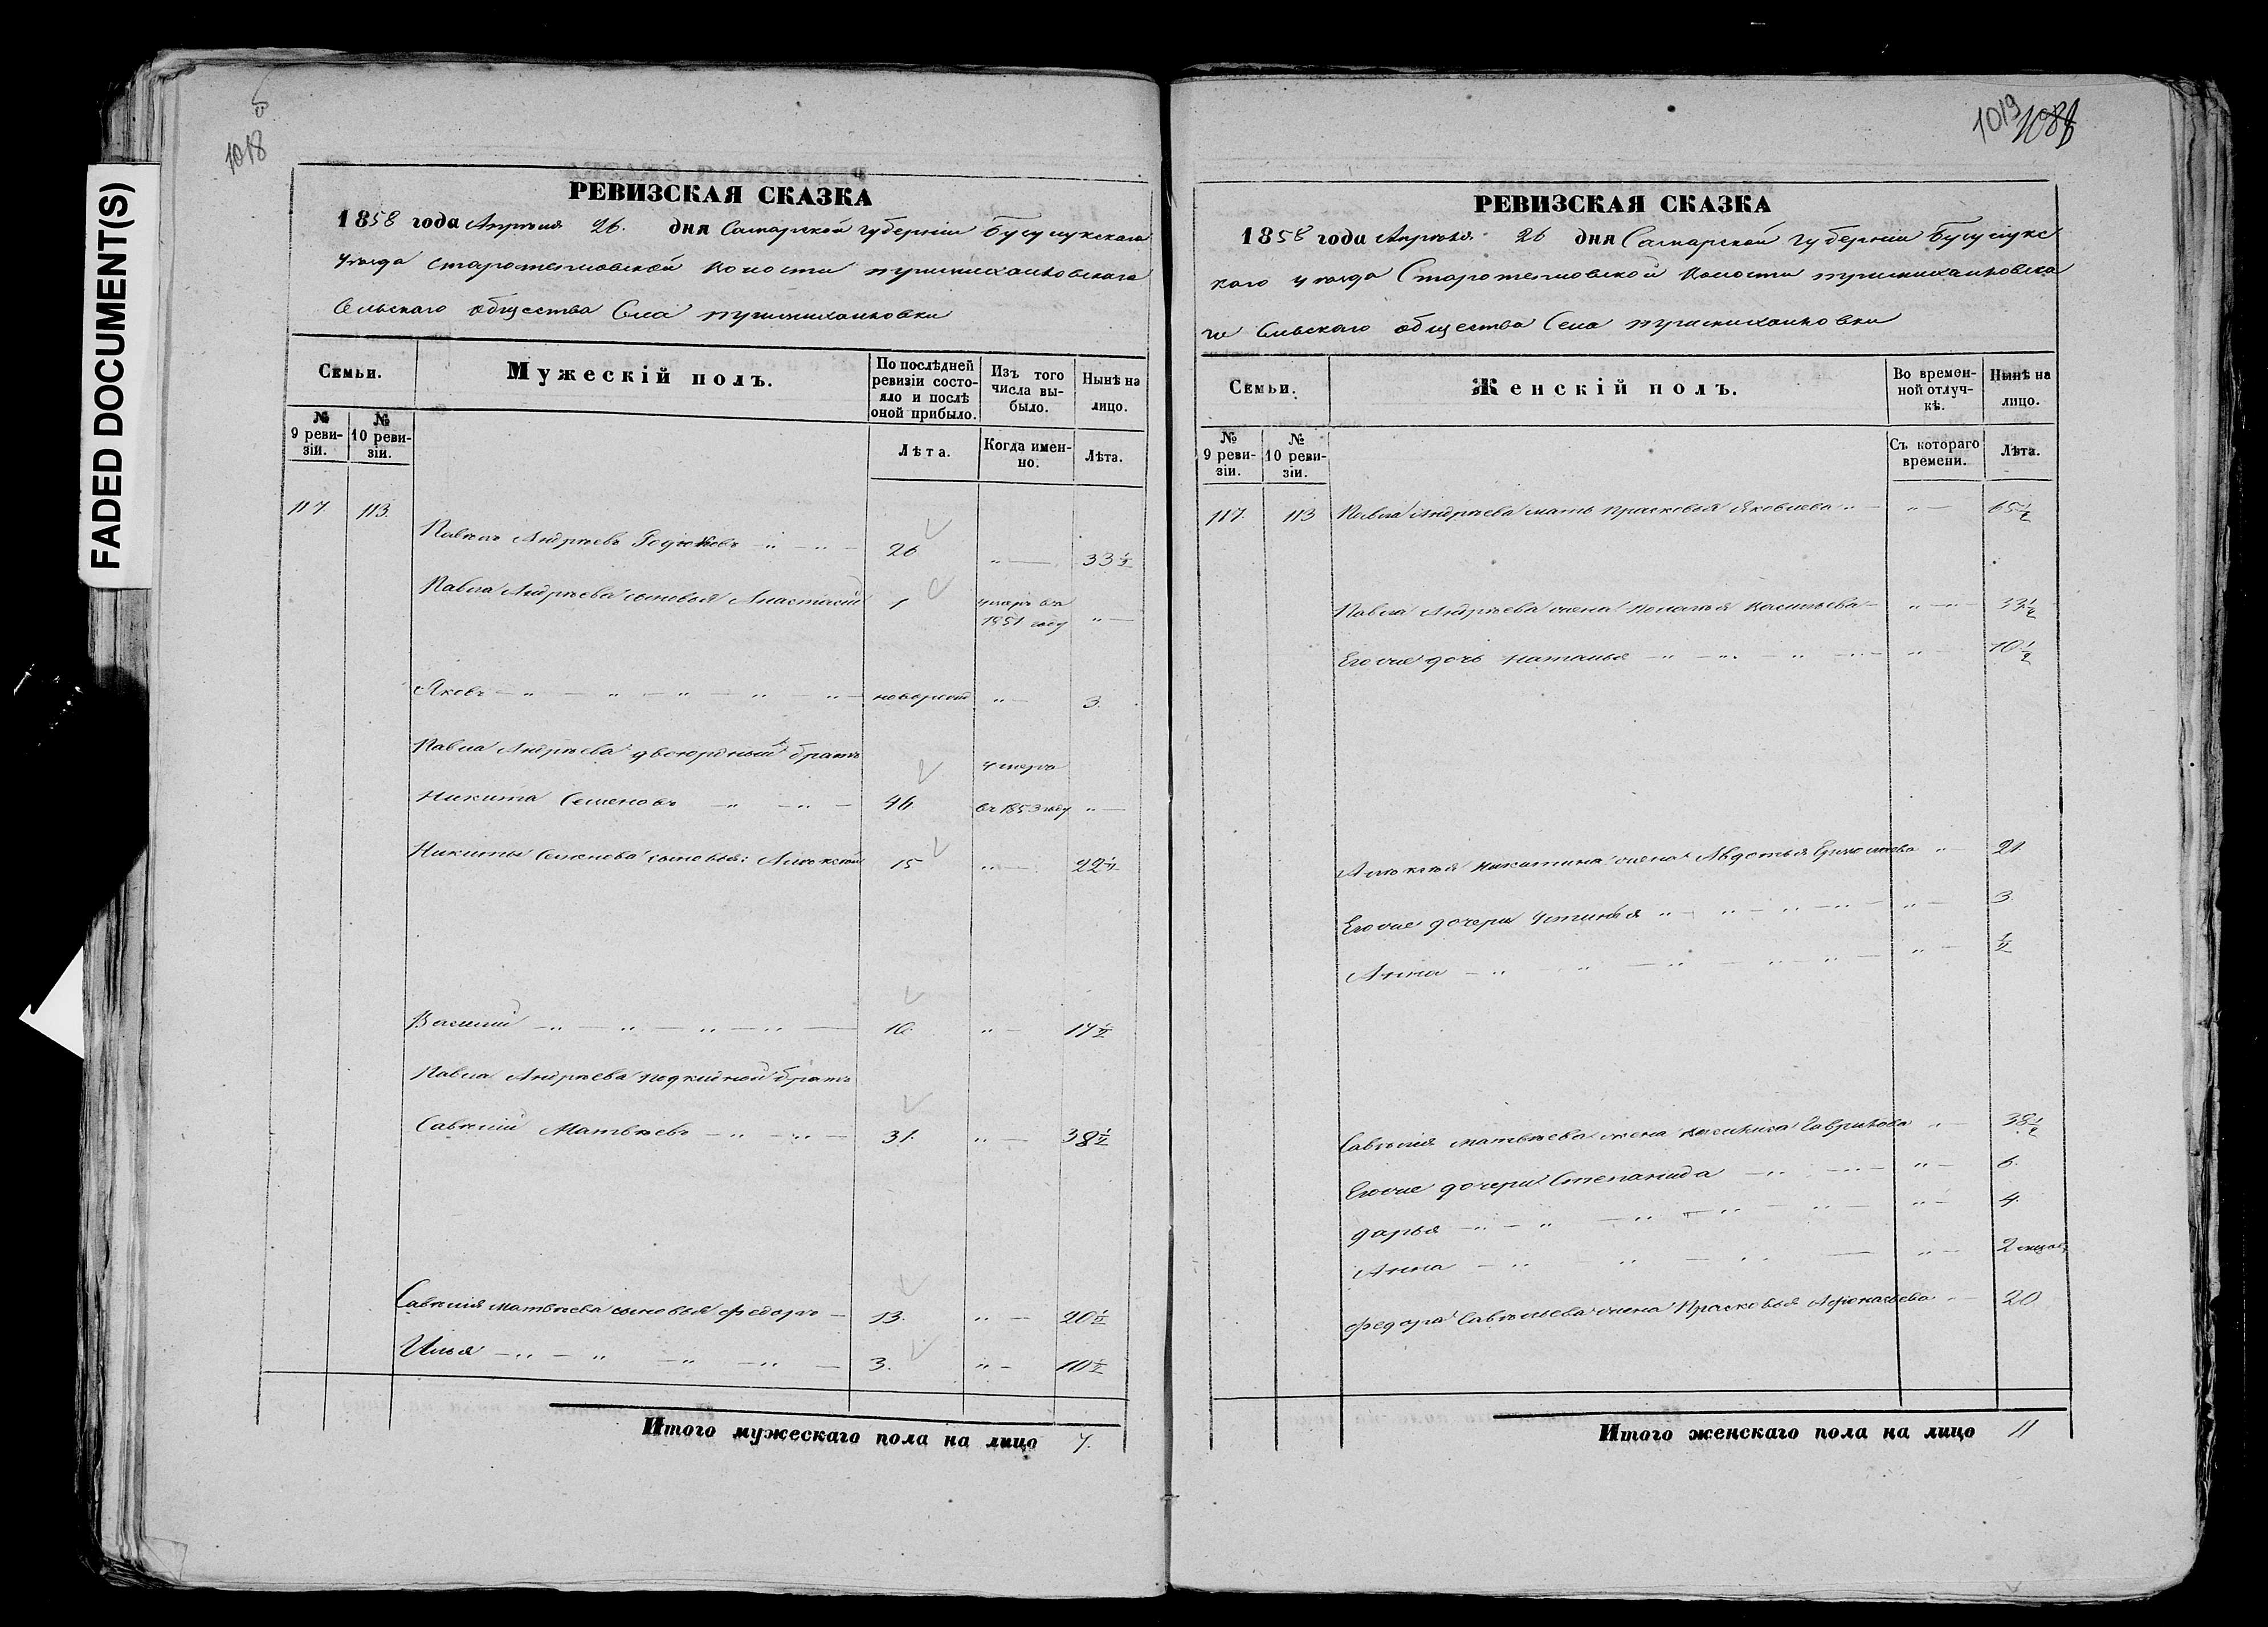 FADED DOCUMENT(S)
1018
РЕВИЗСКАЯ СКАЗКА
1858 года Апрѣля 26. дня Самарской губерніи Бузулукскаго
уѣзда Старотепловской волости
Сельскаго общества Села
Семьи.
Мужескій полъ.
По послѣдней ревизіи состояло и послѣ оной прибыло.
Изъ того числа выбыло.
Нынѣ на лицо.
№ 9 ревизіи.
№ 10 ревизіи.
Лѣта.
Когда именно.
Лѣта.
117. 113.
Павелъ Андрѣевъ 26 „ 33½
Павла Андрѣева сыновья Анастасій 1 умеръ въ 1851 году „
Яковъ „ „ „ „ „ новорожд „ 3.
Павла Андрѣева двоюродный братъ умеръ
Никита Семеновъ „ „ 46. въ 1853 году „
Никиты Семенова сыновья: Алексѣй 15 „ 22½
Василій „ „ „ „ 10. „ 17½
Павла Андрѣева подкидной братъ
Савелій Матвѣевъ „ „ 31. „ 38½
Савелія Матвѣева сыновья Федоръ 13. „ 20½
Илья „ „ „ „ 3. „ 10½
Итого мужескаго пола на лицо 7.
1019 1088
РЕВИЗСКАЯ СКАЗКА
1858 года Апрѣля 26 дня Самарской губерніи Бузулукс
каго уѣзда Старотепловской волости
го Сельскаго общества Села
Семьи.
Женскій полъ.
Во временной отлучкѣ.
Нынѣ на лицо.
№ 9 ревизіи.
№ 10 ревизіи.
Съ котораго времени.
Лѣта.
117. 113 Павла Андрѣева мать Прасковья Яковлева „ „ 65½
Павла Андрѣева жена Пелагея Васильева „ „ 33½
Его же дочь Наталья „ „ „ „ „ 10½
Алексѣя Никитина жена Авдотья „ 21.
Его же дочери Устинья „ „ „ „ „ 3.
Анна „ „ „ „ „ „ ½
Савелія Матвѣева жена Василиса Гаврилова „ 38½
Его же дочери Степанида „ „ „ 6.
дарья „ „ „ „ „ „ 4.
Анна „ „ „ „ 2 мѣсяц
Федора Савельева жена Прасковья Афонасьева „ 20
Итого женскаго пола на лицо 11